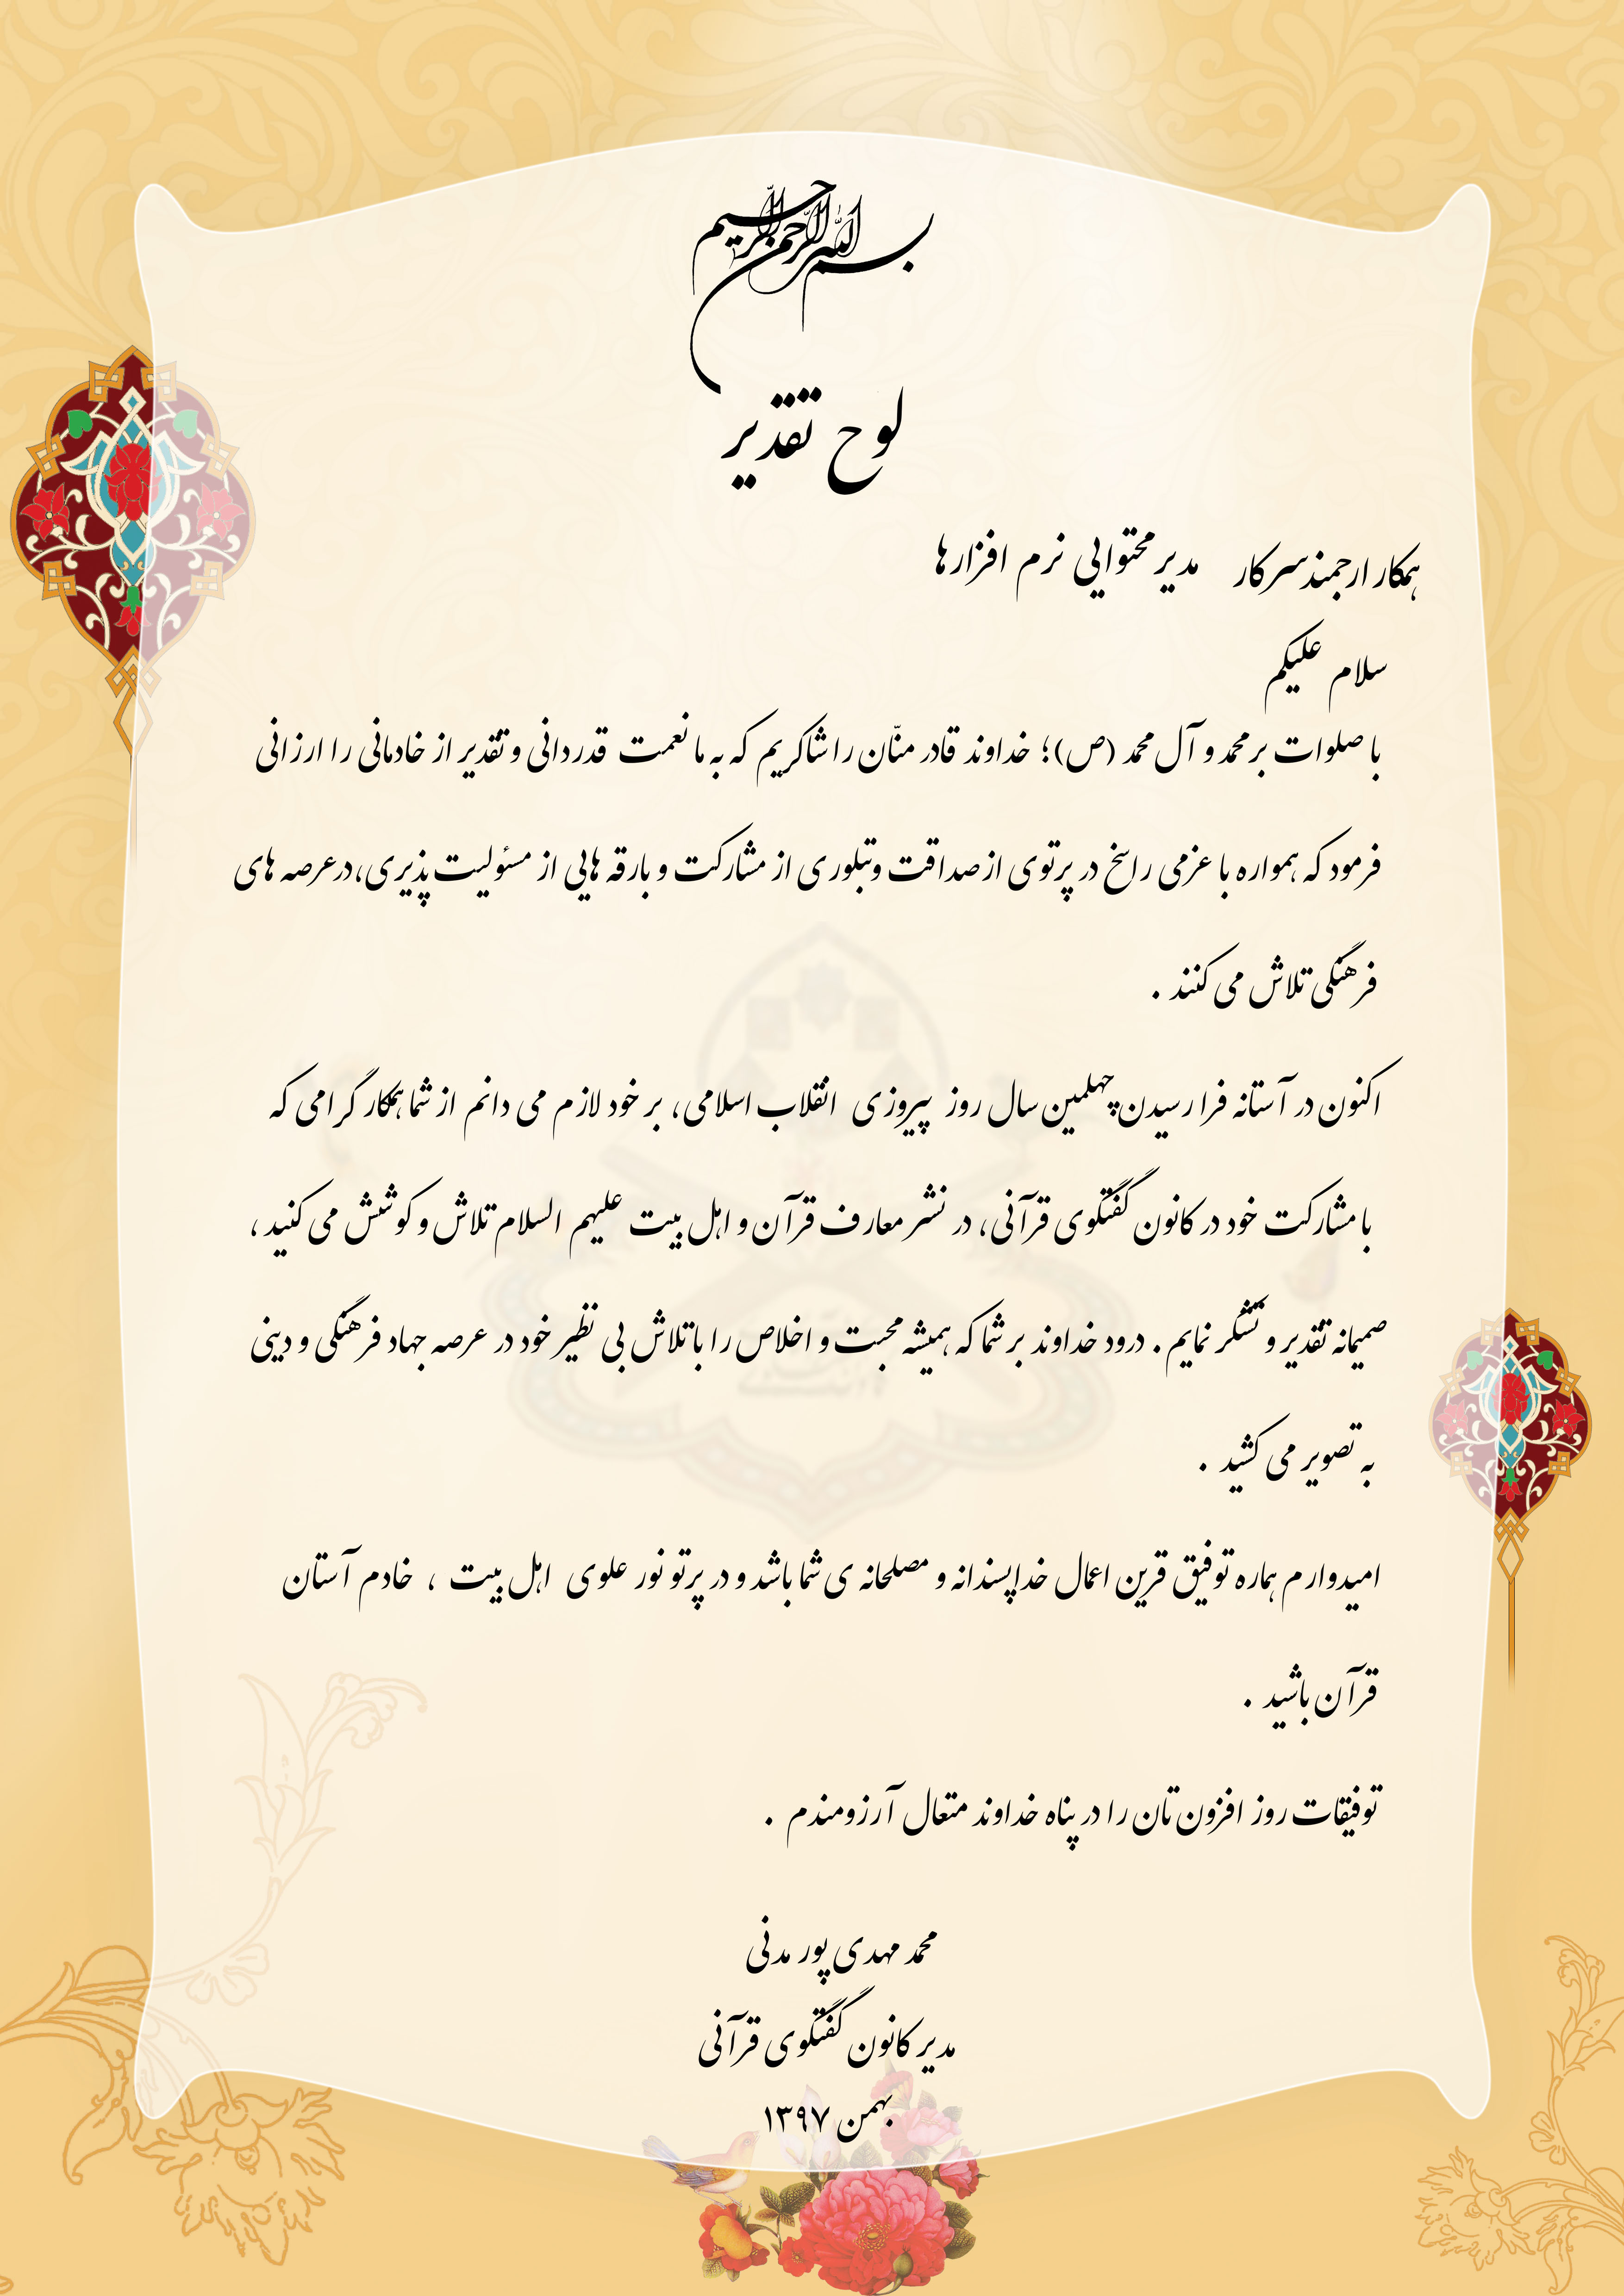 بسم الله الرحمن الرحیم
لوح تقدیر
همکار ارجمند سرکار مدیر محتوایی نرم افزارها
سلام علیکم
با صلوات بر محمد و آل محمد (ص)؛ خداوند قادر منّان را شاکریم که به ما نعمت قدردانی و تقدیر از خادمانی را ارزانی
فرمود که همواره با عزمی راسخ در پرتوی از صداقت و تبلوری از مشارکت و بارقه هایی از مسئولیت پذیری، در عرصه های
فرهنگی تلاش می کنند .
اکنون در آستانه فرا رسیدن چهلمین سال روز پیروزی انقلاب اسلامی، بر خود لازم می دانم از شما همکار گرامی که
با مشارکت خود در کانون گفتگوی قرآنی، در نشر معارف قرآن و اهل بیت علیهم السلام تلاش و کوشش می کنید ،
صمیمانه تقدیر و تشکر نمایم . درود خداوند بر شما که همیشه محبت و اخلاص را با تلاش بی نظیر خود در عرصه جهاد فرهنگی و دینی
به تصویر می کشید .
امیدوارم هماره توفیق قرین اعمال خداپسندانه و مصلحانه ی شما باشد و در پرتو نور علوی اهل بیت ، خادم آستان
قرآن باشید .
توفیقات روز افزون تان را در پناه خداوند متعال آرزومندم .
محمد مهدی پور مدنی
مدیر کانون گفتگوی قرآنی
بهمن ۱۳۹۷